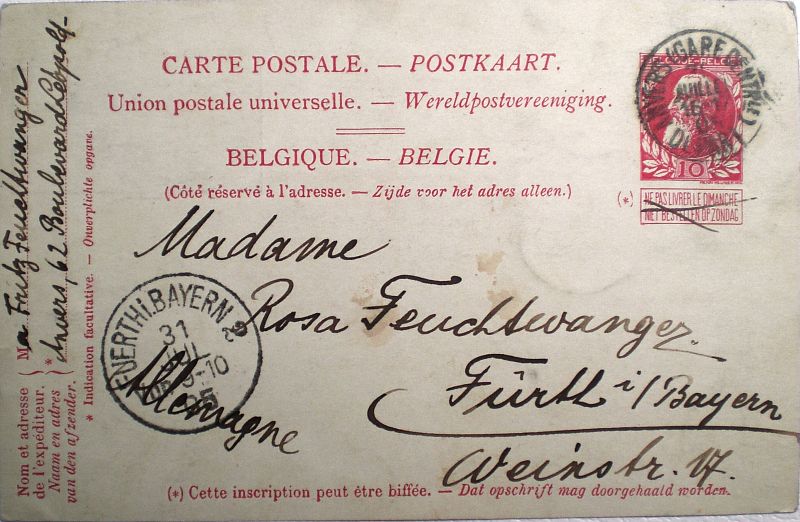 CARTE POSTALE. — POSTKAART.
Union postale universelle. — Wereldpostvereeniging.
BELGIQUE. — BELGIE.
(Côté réservé à l'adresse. — Zijde voor het adres alleen.)
BELGIQUE-BELGIE
10
(*) NE PAS LIVRER LE DIMANCHE
NIET BESTELLEN OP ZONDAG
ANVERS (GARE CENTRALE)
JUIL
Madame
Rosa Feuchtwanger
Fürth i/Bayern
Weinstr.
Allemagne
FUERTH I. BAYERN. 2
31
JUL
(*) Cette inscription peut être biffée. — Dat opschrift mag doorgehaald worden.
Nom et adresse
de l'expéditeur.
Naam en adres
van den afzender.
M a Fritz Feuchtwanger
* Anvers, 62 Boulevard Léopold
* Indication facultative. — Onverplichte opgave.